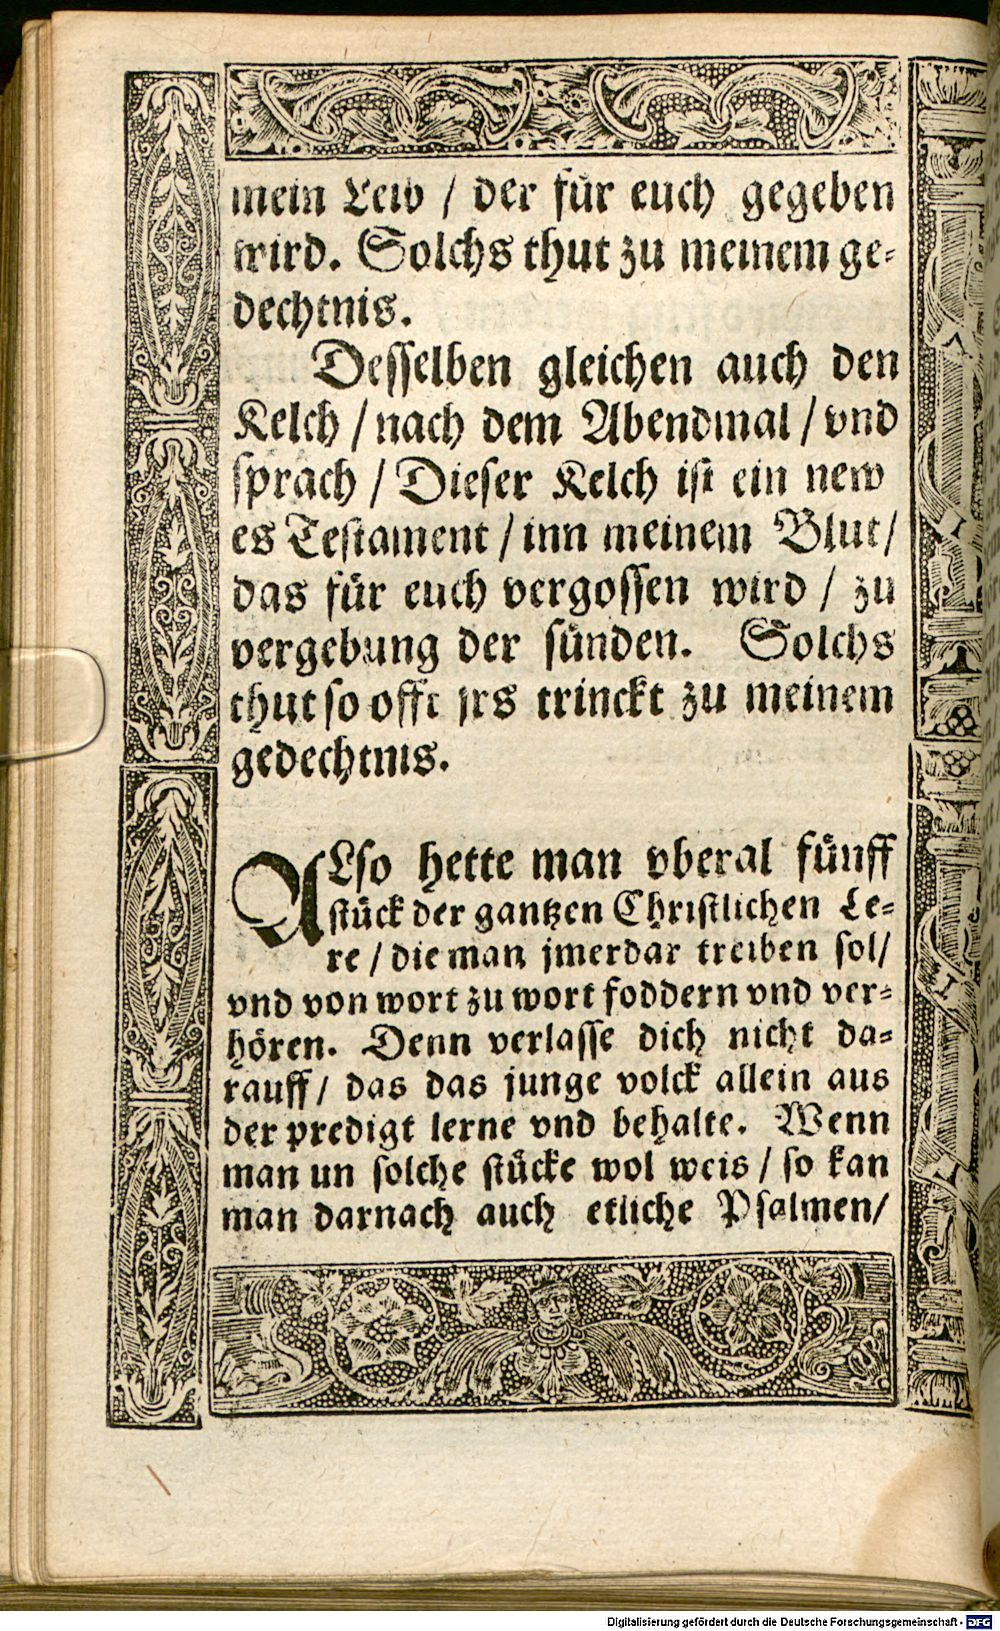 mein Leib / der für euch gegeben
wird. Solchs thut zu meinem ge⸗
dechtnis.
Desselben gleichen auch den
Kelch / nach dem Abendmal / vnd
sprach / Dieser Kelch ist ein new
es Testament / inn meinem Blut /
das für euch vergossen wird / zu
vergebung der sünden. Solchs
thut so offt jrs trinckt zu meinem
gedechtnis.
ALso hette man vberal fünff
stück der gantzen Christlichen Le⸗
re / die man jmerdar treiben sol /
vnd von wort zu wort foddern vnd ver⸗
hören. Denn verlasse dich nicht da⸗
rauff / das das junge volck allein aus
der predigt lerne vnd behalte. Wenn
man un solche stücke wol weis / so kan
man darnach auch etliche Psalmen /
Digitalisierung gefördert durch die Deutsche Forschungsgemeinschaft - DFG